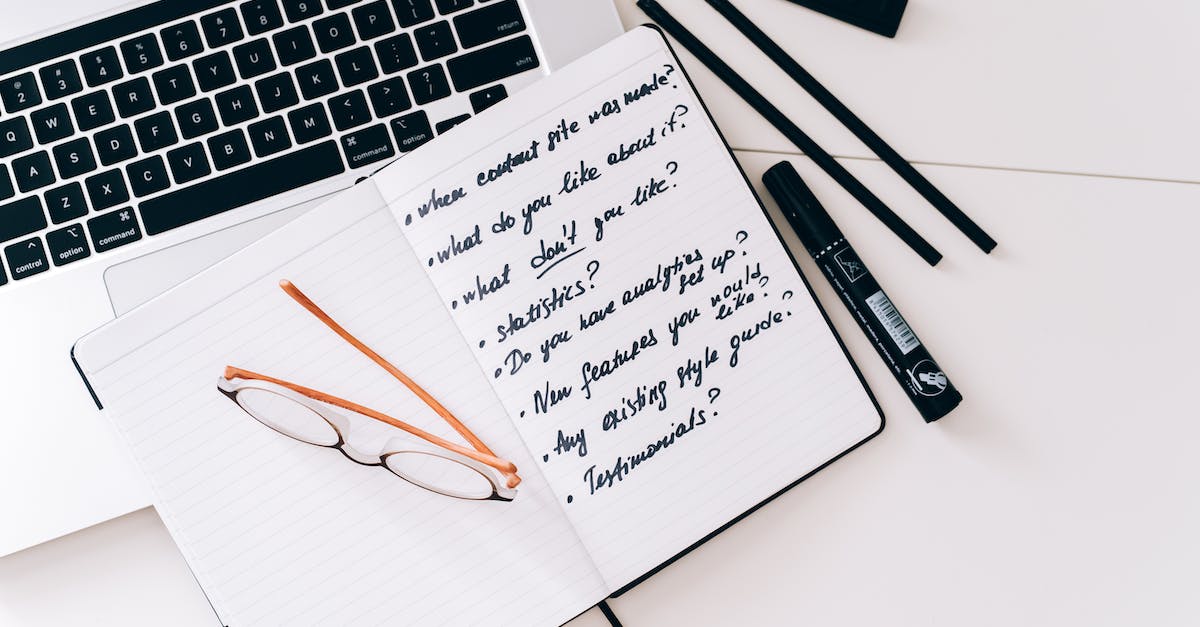 2 3 4 5 6 7 8 9
Q W E R T Y U I O P
return
A S D F G H J K L
Z X C V B N M
shift
control option command
command option
• when content site was made?
• what do you like about it?
• what don't you like?
• statistics?
• Do you have analytics
set up?
• New features you would
like?
• Any existing style guide?
• Testimonials?